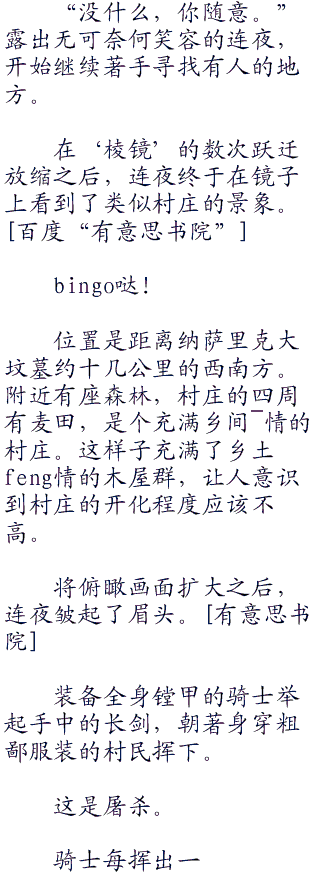 “没什么，你随意。”
露出无可奈何笑容的连夜，
开始继续著手寻找有人的地
方。
在‘棱镜’的数次跃迁
放缩之后，连夜终于在镜子
上看到了类似村庄的景象。
[百度“有意思书院”]
bingo哒！
位置是距离纳萨里克大
坟墓约十几公里的西南方。
附近有座森林，村庄的四周
有麦田，是个充满乡间¯情的
村庄。这样子充满了乡土
feng情的木屋群，让人意识
到村庄的开化程度应该不
高。
将俯瞰画面扩大之后，
连夜皱起了眉头。[有意思书
院]
装备全身镗甲的骑士举
起手中的长剑，朝著身穿粗
鄙服装的村民挥下。
这是屠杀。
骑士每挥出一